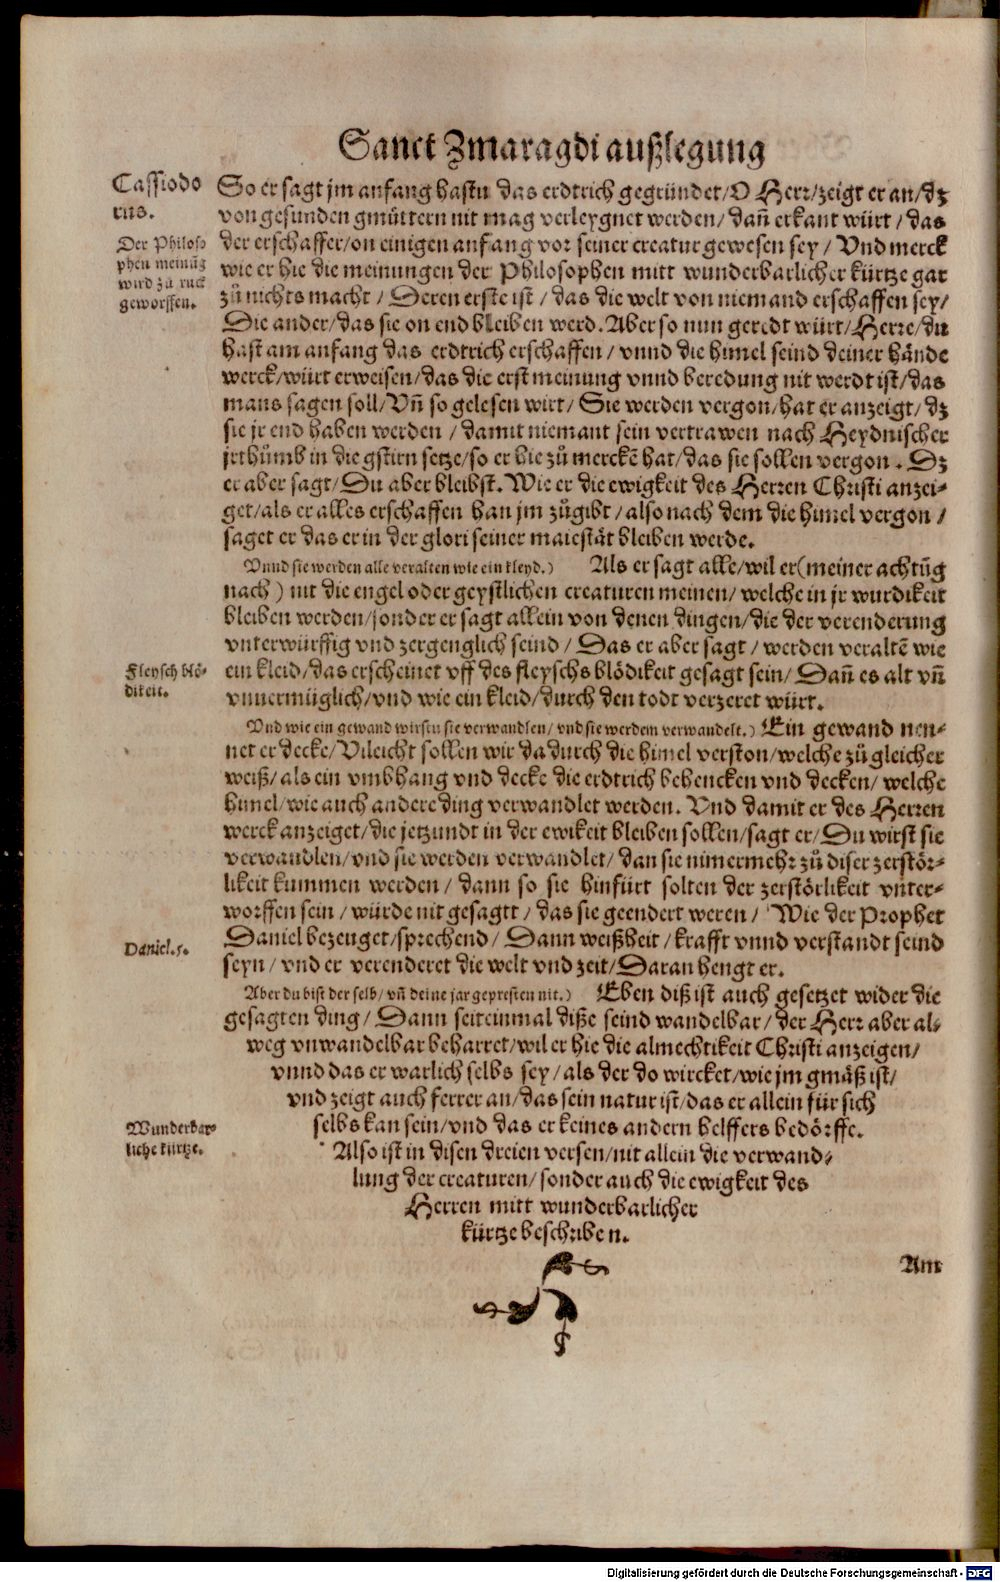 Sanct Zmaragdi außlegung
Cassiodo
rus.
Der Philoso
phen meinũg
wird zů ruck
geworffen.
So er sagt jm anfang hastu das erdtrich gegründet/O Herr/zeigt er an/dz
von gesunden gmüttern nit mag verleygnet werden/ dañ erkant würt / das
der erschaffer/on einigen anfang vor seiner creatur gewesen sey / Vnd merck
wie er hie die meinungen der Philosophen mitt wunderbarlicher kürtze gar
zů nichts macht / Deren erste ist / das die welt von niemand erschaffen sey/
Die ander/das sie on end bleiben werd. Aber so nun geredt würt/Herre/du
hast am anfang das erdtrich erschaffen / vnnd die himel seind deiner hände
werck/würt erweisen/das die erst meinung vnnd beredung nit werdt ist/das
mans sagen soll/Vñ so gelesen wirt/ Sie werden vergon/hat er anzeigt/ dz
sie jr end haben werden / damit niemant sein vertrawen nach Heydnischer
jrthůmb in die gstirn setze/so er hie zů merckẽ hat/das sie sollen vergon . Dz
er aber sagt/Du aber bleibst. Wie er die ewigkeit des Herren Christi anzei-
get/als er alles erschaffen han jm zůgibt / also nach dem die himel vergon /
saget er das er in der glori seiner maiestät bleiben werde.
Vnnd sie werden alle veralten wie ein kleyd.) Als er sagt alle/wil er(meiner achtũg
nach) nit die engel oder geystlichen creaturen meinen/ welche in jr wurdikeit
bleiben werden/sonder er sagt allein von denen dingen/die der verenderung
vnterwürffig vnd zergenglich seind / Das er aber sagt / werden veraltẽ wie
Fleysch blö-
dikeit.
ein kleid/das erscheinet vff des fleyschs blödikeit gesagt sein/ Dañ es alt vñ
vnuermüglich/vnd wie ein kleid/durch den todt verzeret würt.
Vnd wie ein gewand wirstu sie verwandlen/ vnd sie werdem verwandelt.) Ein gewand nen-
net er decke/Vileicht sollen wir dadurch die himel verston/welche zů gleicher
weiß/als ein vmbhang vnd decke die erdtrich behencken vnd decken/ welche
himel/wie auch andere ding verwandlet werden. Vnd damit er des Herren
werck anzeiget/die jetzundt in der ewikeit bleiben sollen/sagt er/Du wirst sie
verwandlen/vnd sie werden verwandlet/ dan sie nimermehr zů diser zerstör-
likeit kummen werden / dann so sie hinfürt solten der zerstörlikeit vnter-
worffen sein / würde nit gesagtt / das sie geendert weren / Wie der Prophet
Daniel.5.
Daniel bezeuget/sprechend/ Dann weißheit / krafft vnnd verstandt seind
seyn/ vnd er verenderet die welt vnd zeit/Daran hengt er.
Aber du bist der selb/ vñ deine jar gepresten nit.) Eben diß ist auch gesetzet wider die
gesagten ding/ Dann seiteinmal diße seind wandelbar/ der Herr aber al-
weg vnwandelbar beharret/wil er hie die almechtikeit Christi anzeigen/
vnnd das er warlich selbs sey/als der do wircket/wie jm gmäß ist/
vnd zeigt auch ferrer an/das sein natur ist/das er allein für sich
Wunderbar-
liche kürtze.
selbs kan sein/vnd das er keines andern helffers bedörffe.
Also ist in disen dreien versen/nit allein die verwand-
lung der creaturen/sonder auch die ewigkeit des
Herren mitt wunderbarlicher
kürtze beschriben.
Am
Digitalisierung gefördert durch die Deutsche Forschungsgemeinschaft - DFG